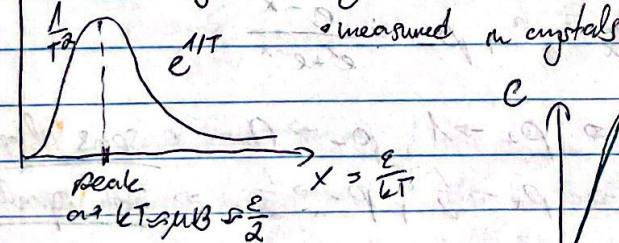 1/T²
e^1/T
• measured in crystals
C
x = ε/kT
peak
at kT ≈ μB ≈ ε/2